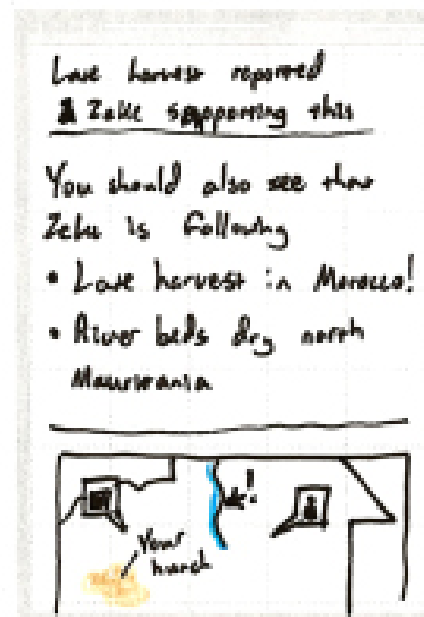 Late harvest reported
Zeke supporting this
You should also see that
Zeke is following
• Late harvest in Morocco!
• River beds dry north
Mauritania
!
Your
hunch